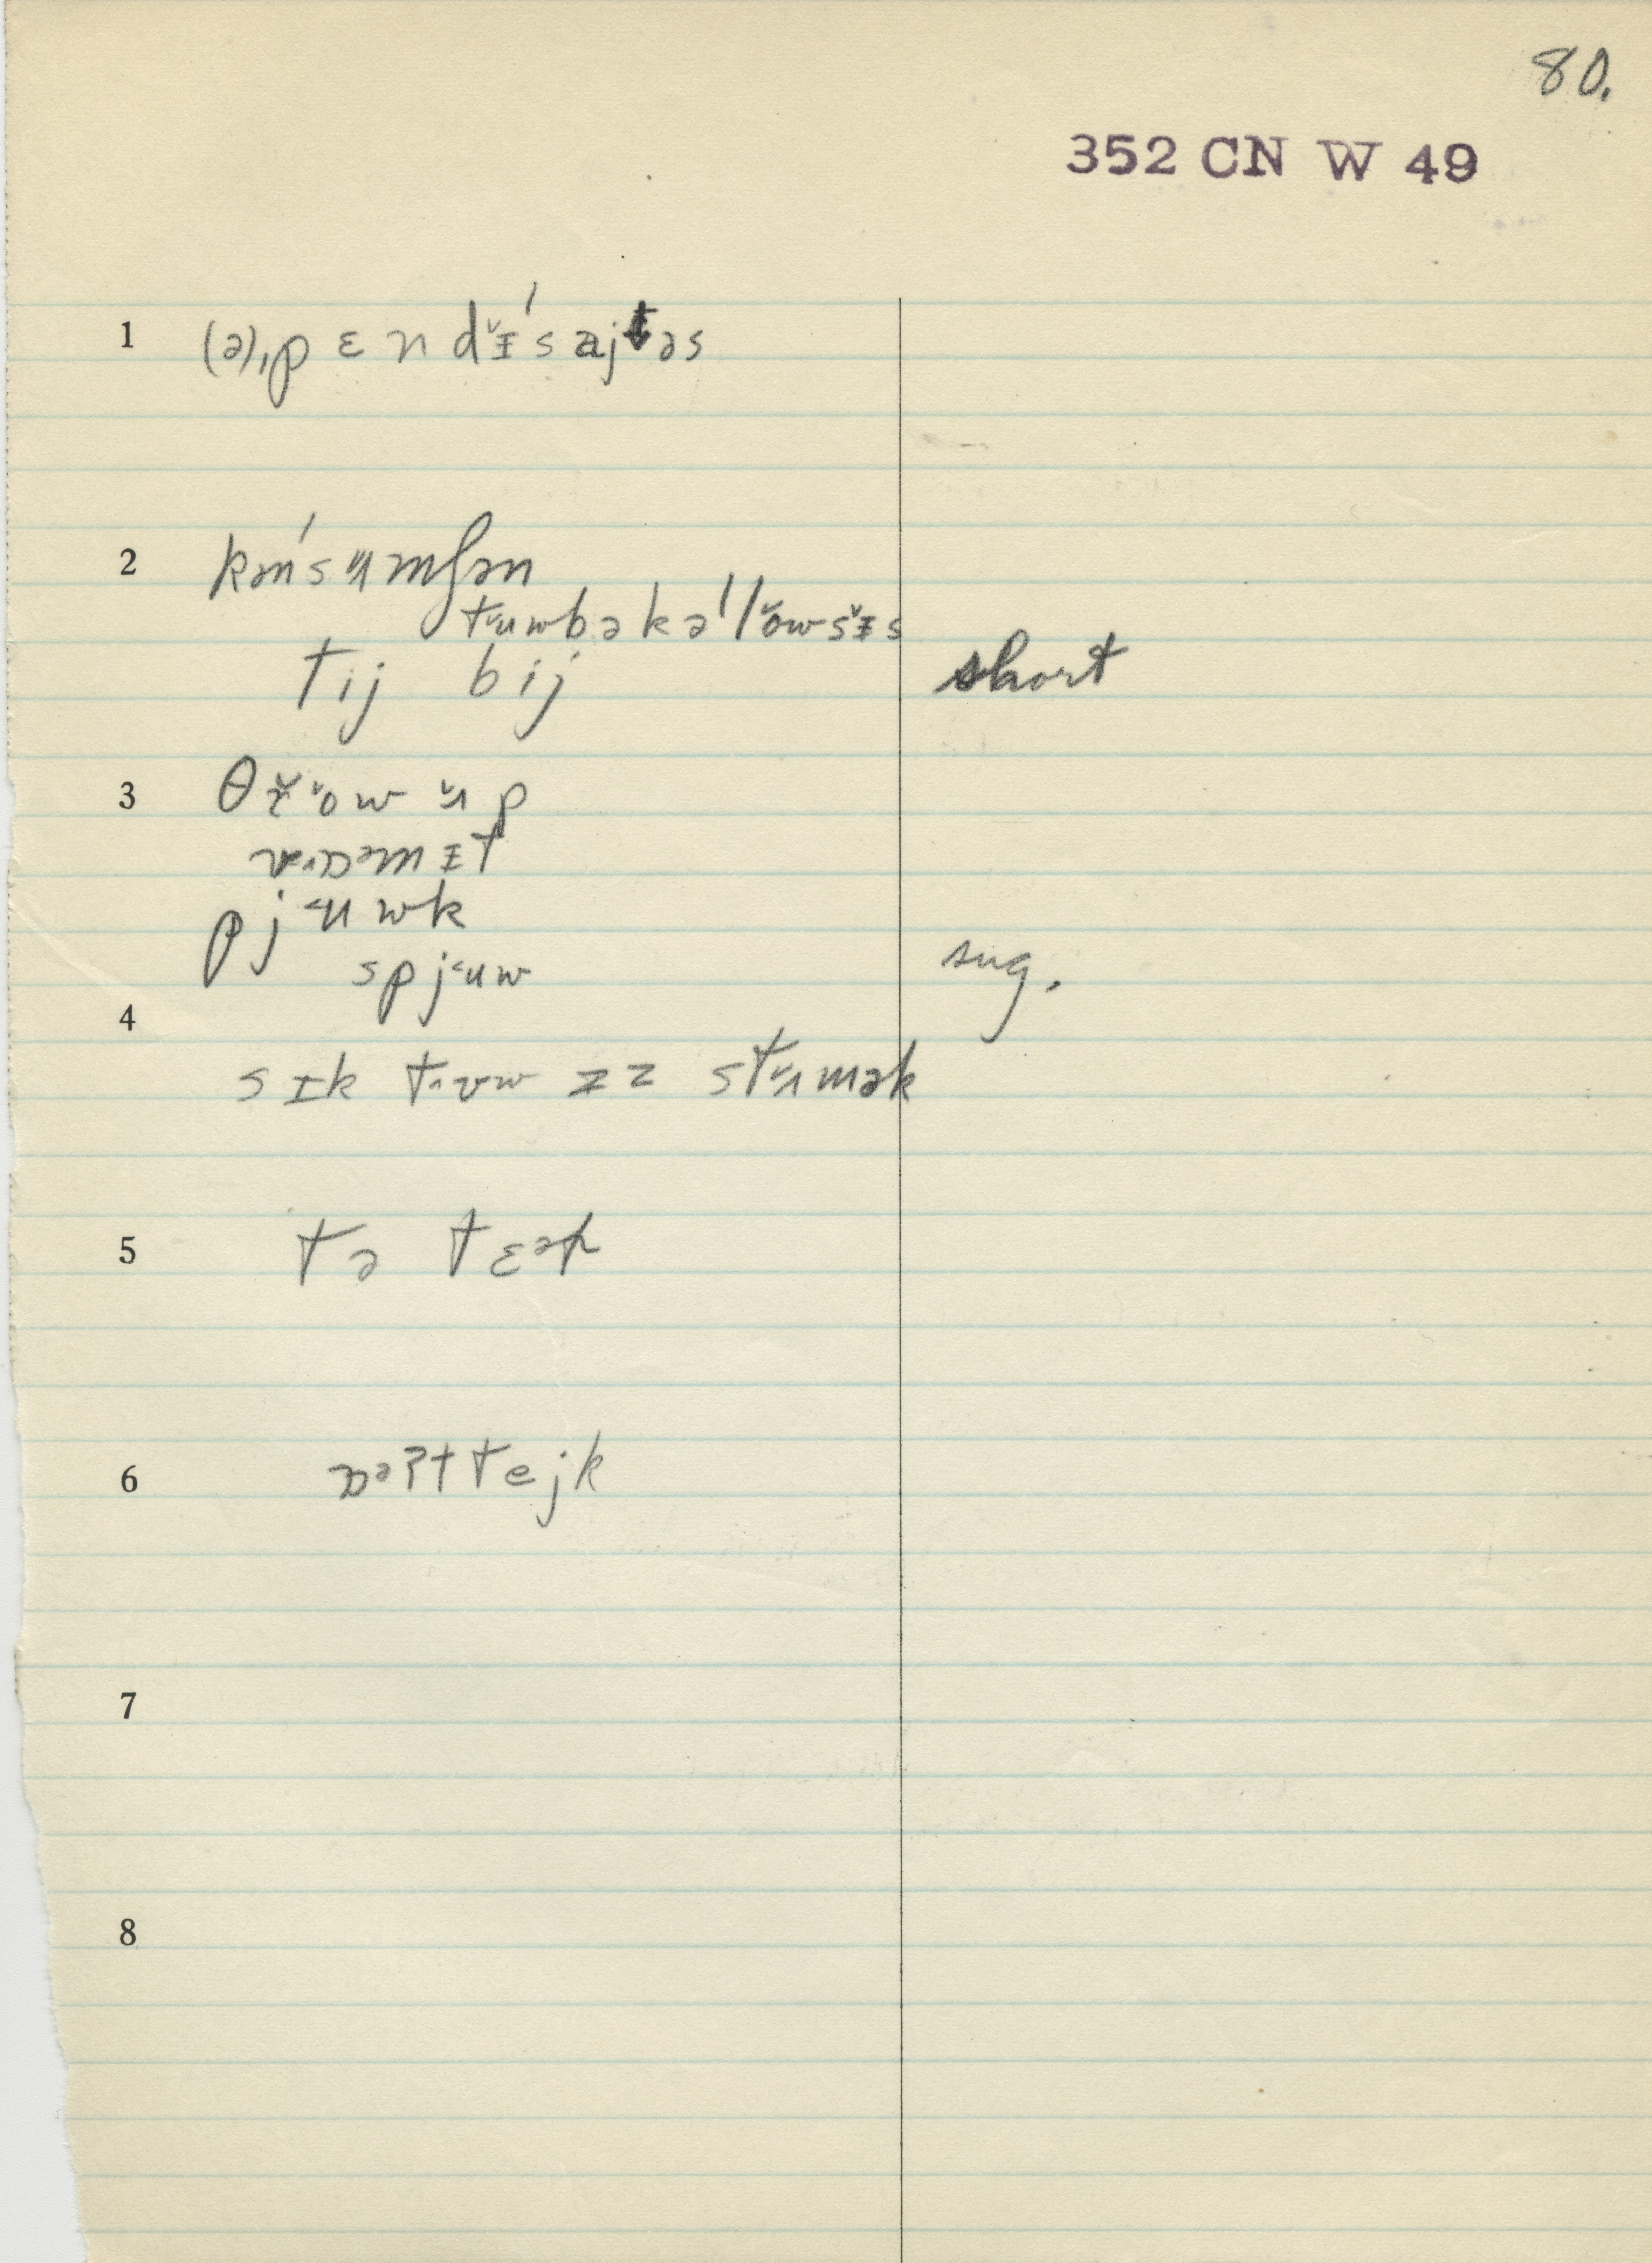 80.
352 CN W 49
1 (ə)ˌpɛndɪ̆ˈsajtəs
2 kənˈsʌ̆mʃən
tŭwbəkəˈlŏwsɪ̆s
tij bij short
3 θɚ̆ŏw ʌ̆p
vɑmət
pjŭwk
spjŭw sug.
4
sɪk tuw ɪz stʌ̆mək
5 tə tɛəɚ
6 ɑəʔt tejk
7
8